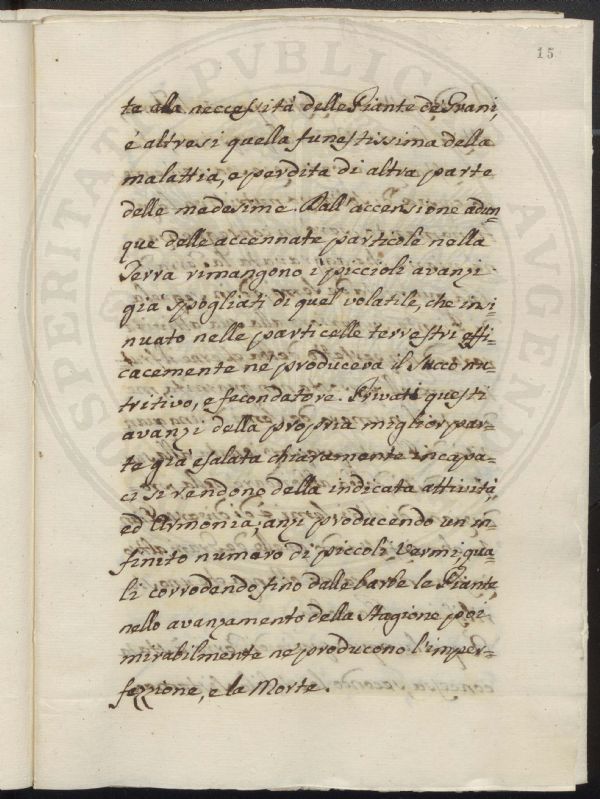 15
te alla neccessità delle Piante de Grani,
é altresi quella funestissima della
malattia, e perdita di altra parte
delle medesime. Dall'accensione adun=
que delle accennate particole nella
Terra rimangono i piccioli avanzi
già spogliati di quel volatile, che insi=
nuato nelle particelle terrestri effi=
cacemente ne produceva il succo nu=
tritivo, e fecondatore. Privati questi
avanzi della propria miglior par=
te già esalata chiaramente incapa=
ci si rendono della indicata attività,
ed Armonia; anzi producendo un in=
finito numero di piccoli Vermi, qua=
li corrodendo fino dalle barbe le Piante,
nello avanzamento della Stagione poi
mirabilmente ne producono l'imper=
fezzione, e la Morte.